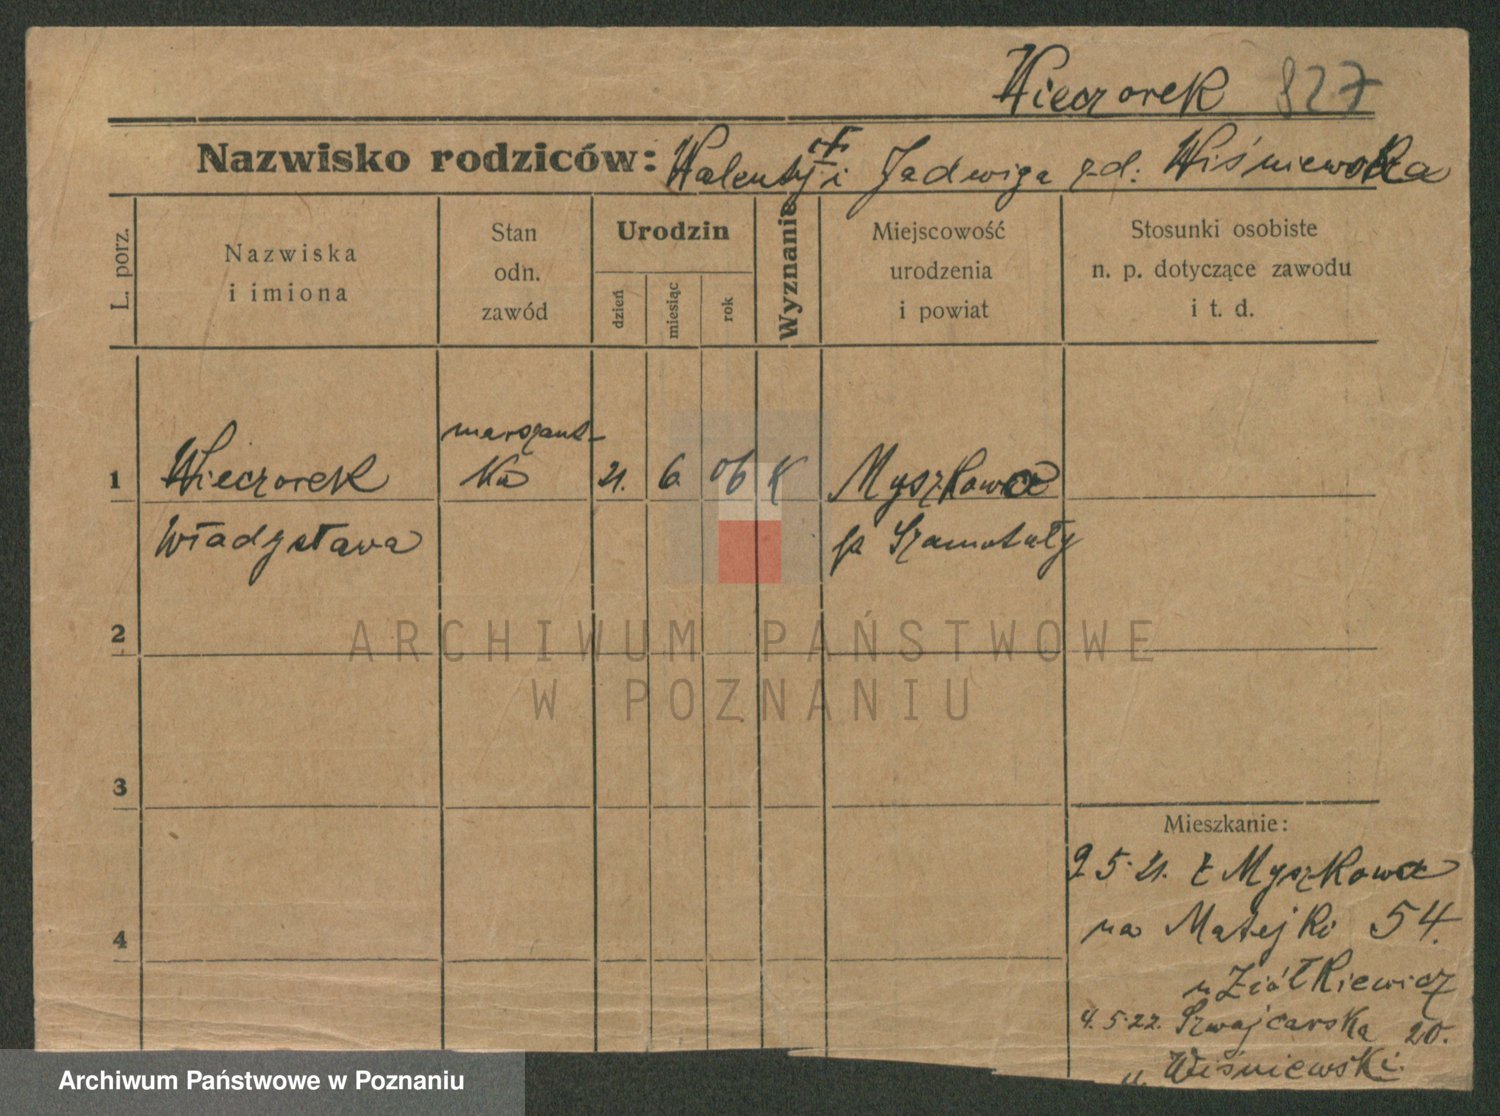 Wieczorek 827
Nazwisko rodziców: Walenty i Jadwiga zd: Wiśniewska
L. porz.
Nazwiska
i imiona
Stan
odn.
zawód
Urodzin
dzień
miesiąc
rok
Wyznanie
Miejscowość
urodzenia
i powiat
Stosunki osobiste
n. p. dotyczące zawodu
i t. d.
marszant-
1 Wieczorek ka 21. 6. 06 K Myszkowo
Władysława p Szamotuły
2
ARCHIWUM PAŃSTWOWE
W POZNANIU
3
Mieszkanie:
9 5. 21. z Myszkowa
4 na Matejki 54.
u Ziółkiewicz
4. 5. 22. Szwajcarska 20.
u Wiśniewski.
Archiwum Państwowe w Poznaniu